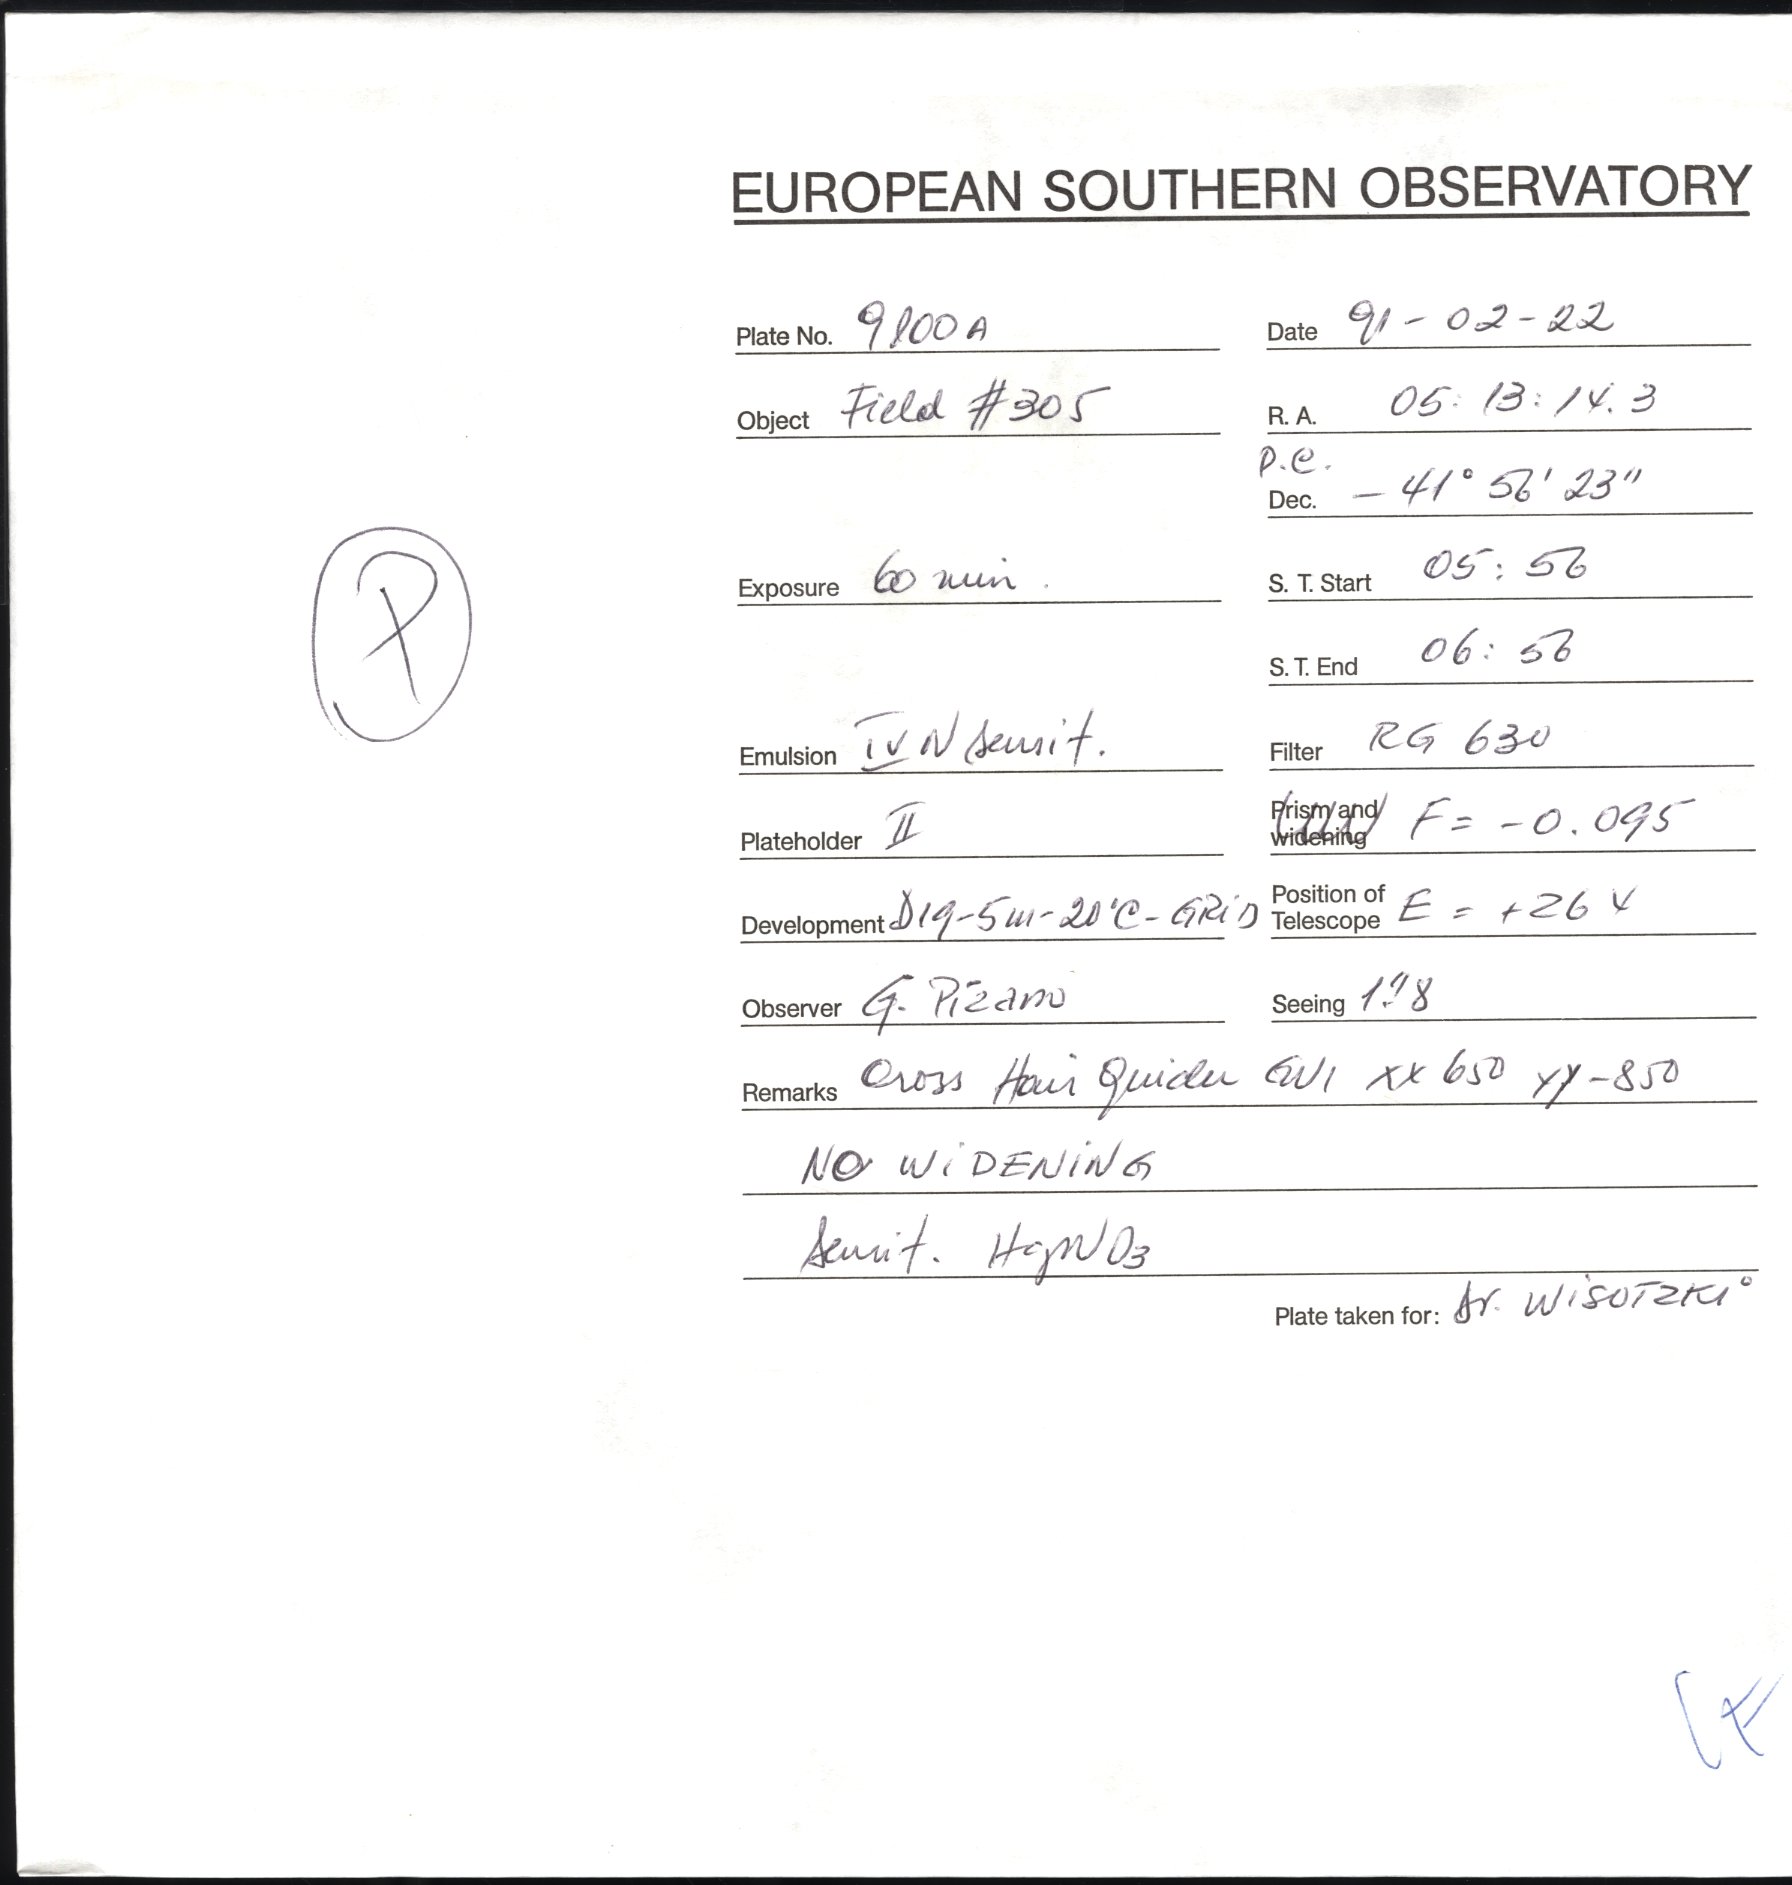 EUROPEAN SOUTHERN OBSERVATORY
Plate No. 9100A Date 91-02-22
Object Field #305 R. A. 05:13:14.3
P.C.
Dec. -41° 56' 23"
Exposure 60 min. S. T. Start 05:56
S. T. End 06:56
Emulsion IV N sensit. Filter RG 630
Plateholder II Prism and widening F= -0.095
Development D19-5m-20°C-GRiD Position of Telescope E = +264
Observer G. Pizarro Seeing 1."8
Remarks Cross Hair Guider GW1 XX 650 YY-850
NO WiDENiNG
Sensit. HgNO3
Plate taken for: Dr. WiSOTZKi
P